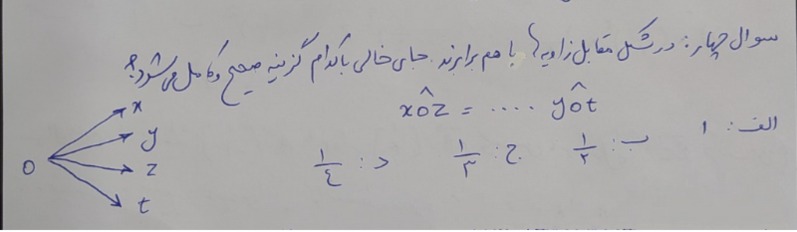 سوال چهار: در شکل مقابل زاویه‌ها با هم برابرند. جای خالی با کدام گزینه صحیح و کامل می‌شود؟
xôz = .... yôt
الف: ۱ ب: ۱/۲ ج: ۱/۳ د: ۱/۴
x
y
O z
t